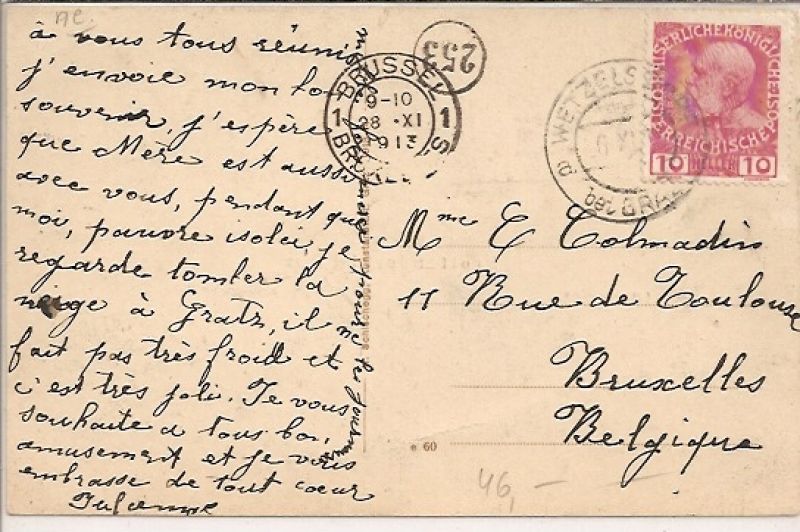 à vous tous réunis
j'envoie mon bon
souvenir, j'espère
que Mère est aussi
avec vous, pendant que
moi, pauvre isolée, je
regarde tomber la
neige à Gratz, il ne
fait pas très froid et
c'est très joli. Je vous
souhaite a tous bon
amusement et je vous
embrasse de tout coeur
253
BRUSSEL
1 1
9-10
28 XI
1913
WETZELS
bei GRA
KAISERLICHE KÖNIGLICHE
ÖSTERREICHISCHE POST
10 HELLER 10
Mme E Colmadin
11 Rue de Toulouse
Bruxelles
Belgique
60
46,-